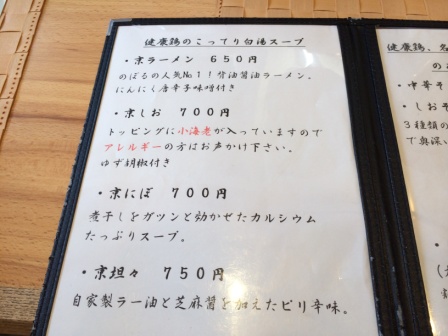 健康鶏のこってり白湯スープ
・京ラーメン 650円
のぼるの人気No1!背油醤油ラーメン。
にんにく唐辛子味噌付き
・京しお 700円
トッピングに小海老が入っていますので
アレルギーの方はお声かけ下さい。
ゆず胡椒付き
・京にぼ 700円
煮干しをガツンと効かせたカルシウム
たっぷりスープ。
・京坦々 750円
自家製ラー油と芝麻醤を加えたピリ辛味。
健康鶏、
の
・中華そ
・しおそ
3種類の
で奥深い